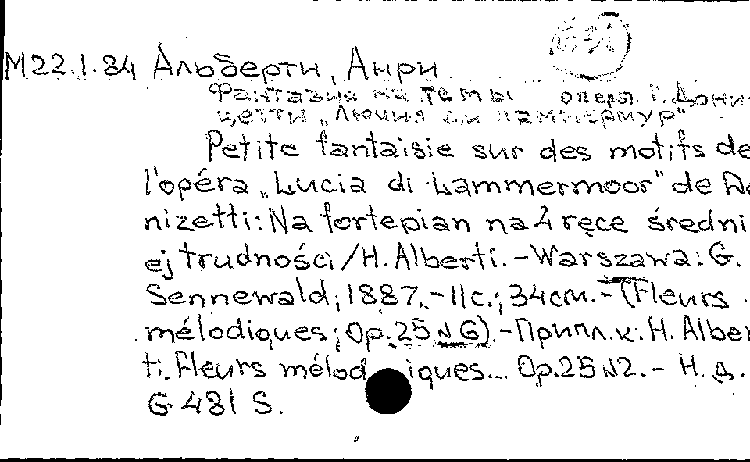 М22.1.84 Альберти, Анри
Фантазия на темы оперы Г. Дони-
цетти „Лючия ди Ламмермур"
Petite fantaisie sur des motifs de
l'opéra „Lucia di Lammermoor" de Do
nizetti: Na fortepian na 4 ręce średni
ej trudności / H. Alberti. - Warszawa: G.
Sennewald, 1887. - 11с.; 34см. - (Fleurs
mélodiques; Op. 25 N 6). - Припл. к: H. Alber
ti. Fleurs mélodiques... Op. 25 N2. - Н. д.
G 481 S.